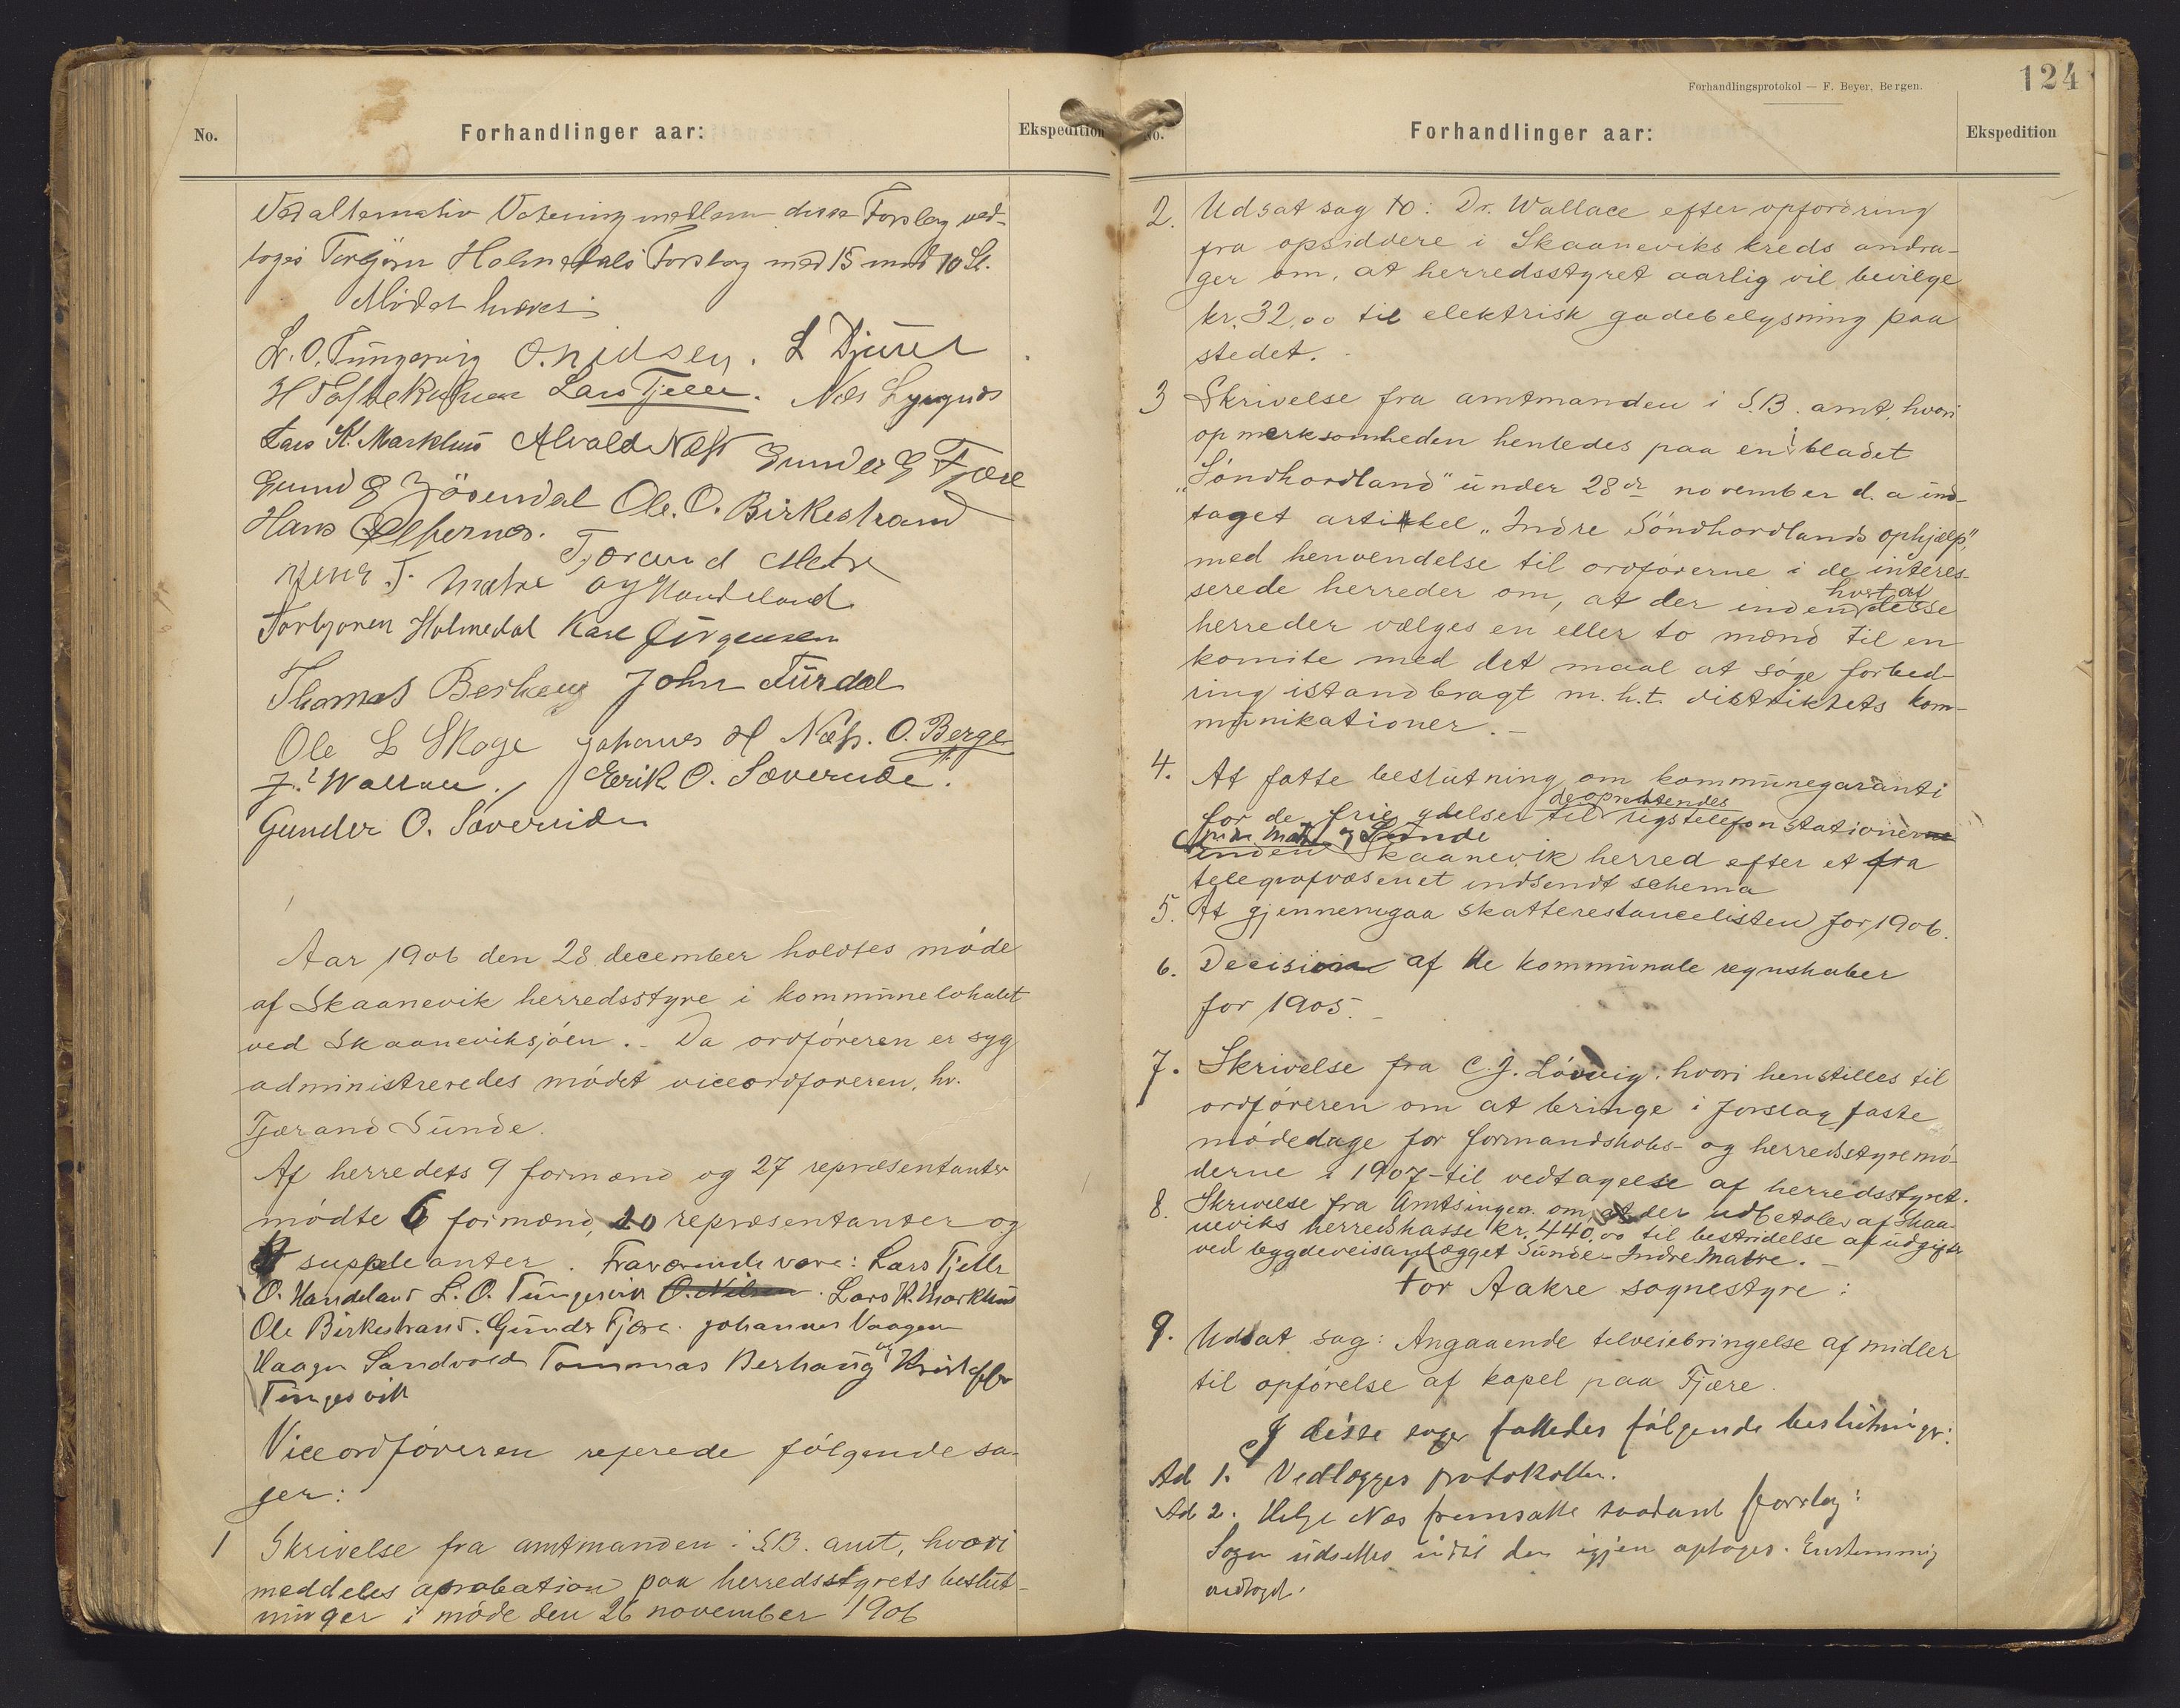 No.
Forhandlinger aar:
Ekspedition
Ved alternativ Votering mellem disse Forslag ved-
toges Torbjørn Holmedals Forslag med 15 mod 10 St.
Mødet hævet
L. O. Tungesvig O. Nilsen. L Djuvet
Lars Tjelle. Nils
Lars K. Marklund Alvald Næss Gunder G Fjære
Gund G Ole. O. Birkestrand
Hans
Tjærand Matre
Jens T. Matre Handeland
Torbjørn Holmedal Karl Jørgensen
Thomas Berhaug John Fürdal
Ole L Skoge Johannes H Næss. O. Berge
J. Wallace. Erik O. Sæverude.
Gunder O. Sæverude
Aar 1906 den 28 december holdtes møde
af Skaanevik herredsstyre i kommunelokalet
ved Skaaneviksjøen. – Da ordføreren er syg
administreredes mødet viceordføreren, hr.
Tjærand Sunde.
Af herredets 9 formænd og 27 repræsentanter
mødte 6 formænd, 20 repræsentanter og
suppleanter. Fraværende vare: Lars Tjelle
O. Handeland L. O. Tungesvik O. Nilsen. Lars K. Marklund
Ole Birkestrand. Gunder Fjære. Johannes Vaagen
Haagen Sandvold Tommas Berhaug og Kristoffer
Tungesvik
Viceordføreren refererede følgende sa-
ger:
1 Skrivelse fra amtmanden i S.B. amt, hvori
meddeles aprobation paa herredsstyrets beslut-
ninger i møde den 26 november 1906
Forhandlingsprotokol — F. Beyer, Bergen.
124
No.
Forhandlinger aar:
Ekspedition
2. Udsat sag 10: Dr. Wallace efter opfordring
fra opsiddere i Skaaneviks kreds andra-
ger om, at herredsstyret aarlig vil bevilge
kr. 32,00 til elektrisk gadebelysning paa
stedet.
3 Skrivelse fra amtmanden i S.B. amt, hvori
opmerksomheden henledes paa en i bladet
"Søndhordland" under 28de november d. a ind-
taget artikkel "Indre Søndhordlands ophjælp",
med henvendelse til ordførerne i de interes-
serede herreder om, at der inden hvert af disse
herreder vælges en eller to mænd til en
komite med det maal at søge forbed-
ring istandbragt m. h. t. distriktets kom-
munikationer. –
4. At fatte beslutning om kommunegaranti
for de frie ydelser til de oprettendes rigstelefonstationerne
Indre Matre og Sunde
inden Skaanevik herred efter et fra
telegrafvæsenet indsendt schema
5. At gjennemgaa skatterestancelisten for 1906.
6. Decision af de kommunale regnskaber
for 1905. –
7. Skrivelse fra C. J. Løvvig, hvori henstilles til
ordføreren om at bringe i forslag faste
mødedage for formandskabs- og herredsstyremø-
derne i 1907 – til vedtagelse af herredsstyret.
8. Skrivelse fra Amtsingen. om, at der udbetales af Skaa-
neviks herredskasse kr. 440.00 til bestridelse af udgifter
ved bygdeveisanlægget Sunde – Indre Matre. –
For Aakre sognestyre:
9. Udsat sag: Angaaende tilveiebringelse af midler
til opførelse af kapel paa Fjære.
I disse sager fattedes følgende beslutninger:
Ad 1. Vedlægges protokollen.
Ad 2. Helge Næs fremsatte saadant forslag:
Sagen udsettes indtil den igjen optages. Enstemmig
vedtaget.